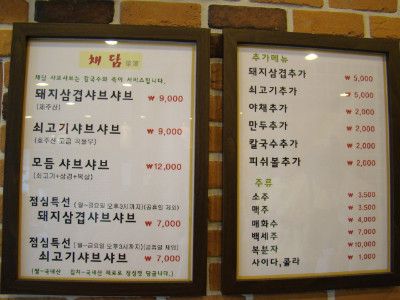 채담
채담 샤브샤브는 칼국수와 죽이 서비스입니다.
돼지삼겹샤브샤브 ₩ 9,000
(제주산)
쇠고기샤브샤브 ₩ 9,000
(호주산 고급 척롤부)
모듬 샤브샤브 ₩12,000
(쇠고기+삼겹+목살)
점심특선 (월~금요일 오후3시까지)(공휴일 제외)
돼지삼겹샤브샤브 ₩ 7,000
점심특선 (월~금요일 오후3시까지)(공휴일 제외)
쇠고기샤브샤브 ₩ 7,000
(쌀-국내산 김치-국내산 재료로 정성껏 담급니다.)
추가메뉴
돼지삼겹추가 ₩ 5,000
쇠고기추가 ₩ 5,000
야채추가 ₩ 2,000
만두추가 ₩ 2,000
칼국수추가 ₩ 2,000
피쉬볼추가 ₩ 2,000
주류
소주 ₩ 3,500
맥주 ₩ 3,500
매화수 ₩ 4,000
백세주 ₩ 7,000
복분자 ₩10,000
사이다,콜라 ₩ 1,000